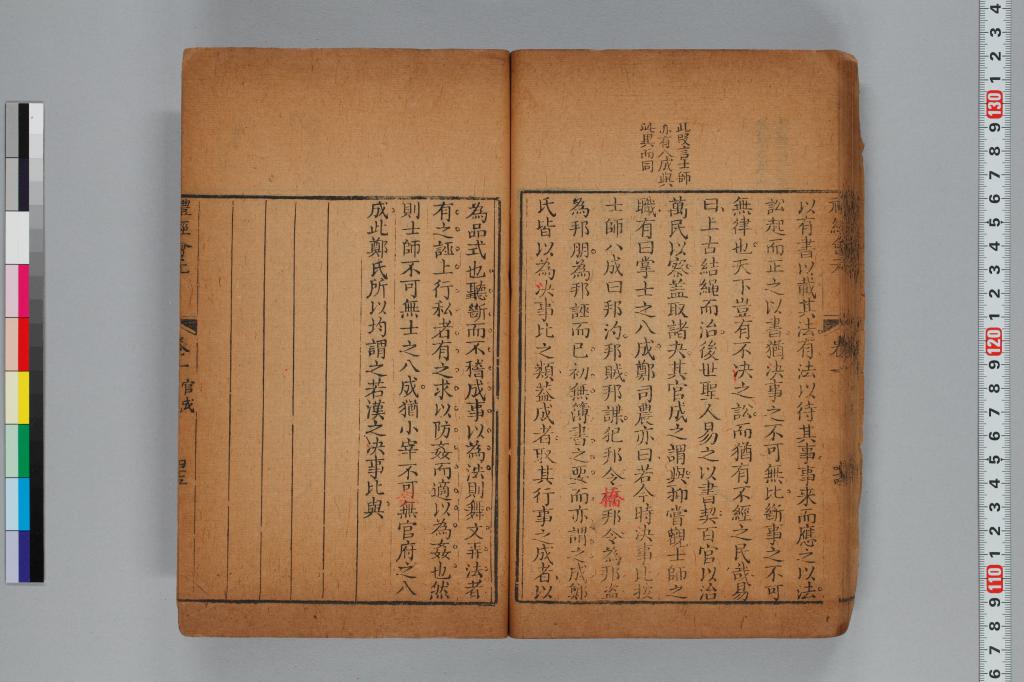 此段言士師
亦有八成與
此異而同
以有書以載其法有法以待其事事来而應之以法
訟起而正之以書猶决事之不可無比斷事之不可
無律也天下豈有不决之訟而猶有不經之民哉易
曰上古結繩而治後世聖人易之以書契百官以治
萬民以察蓋取諸夬其官成之謂與抑嘗觀士師之
職有曰掌士之八成鄭司農亦曰若今時决事比按
士師八成曰邦汋邦賊邦諜犯邦令橋邦令為邦盗
為邦朋為邦誣而已初無簿書之要而亦謂之成鄭
氏皆以為决事比之類益成者取其行事之成者以
為品式也聽斷而不稽成事以為决則舞文弄法者
有之誣上行私者有之求以防姦而適以為姦也然
則士師不可無士之八成猶小宰不可無官府之八
成此鄭氏所以均謂之若漢之决事比與
禮經會元
卷一
官成
四五